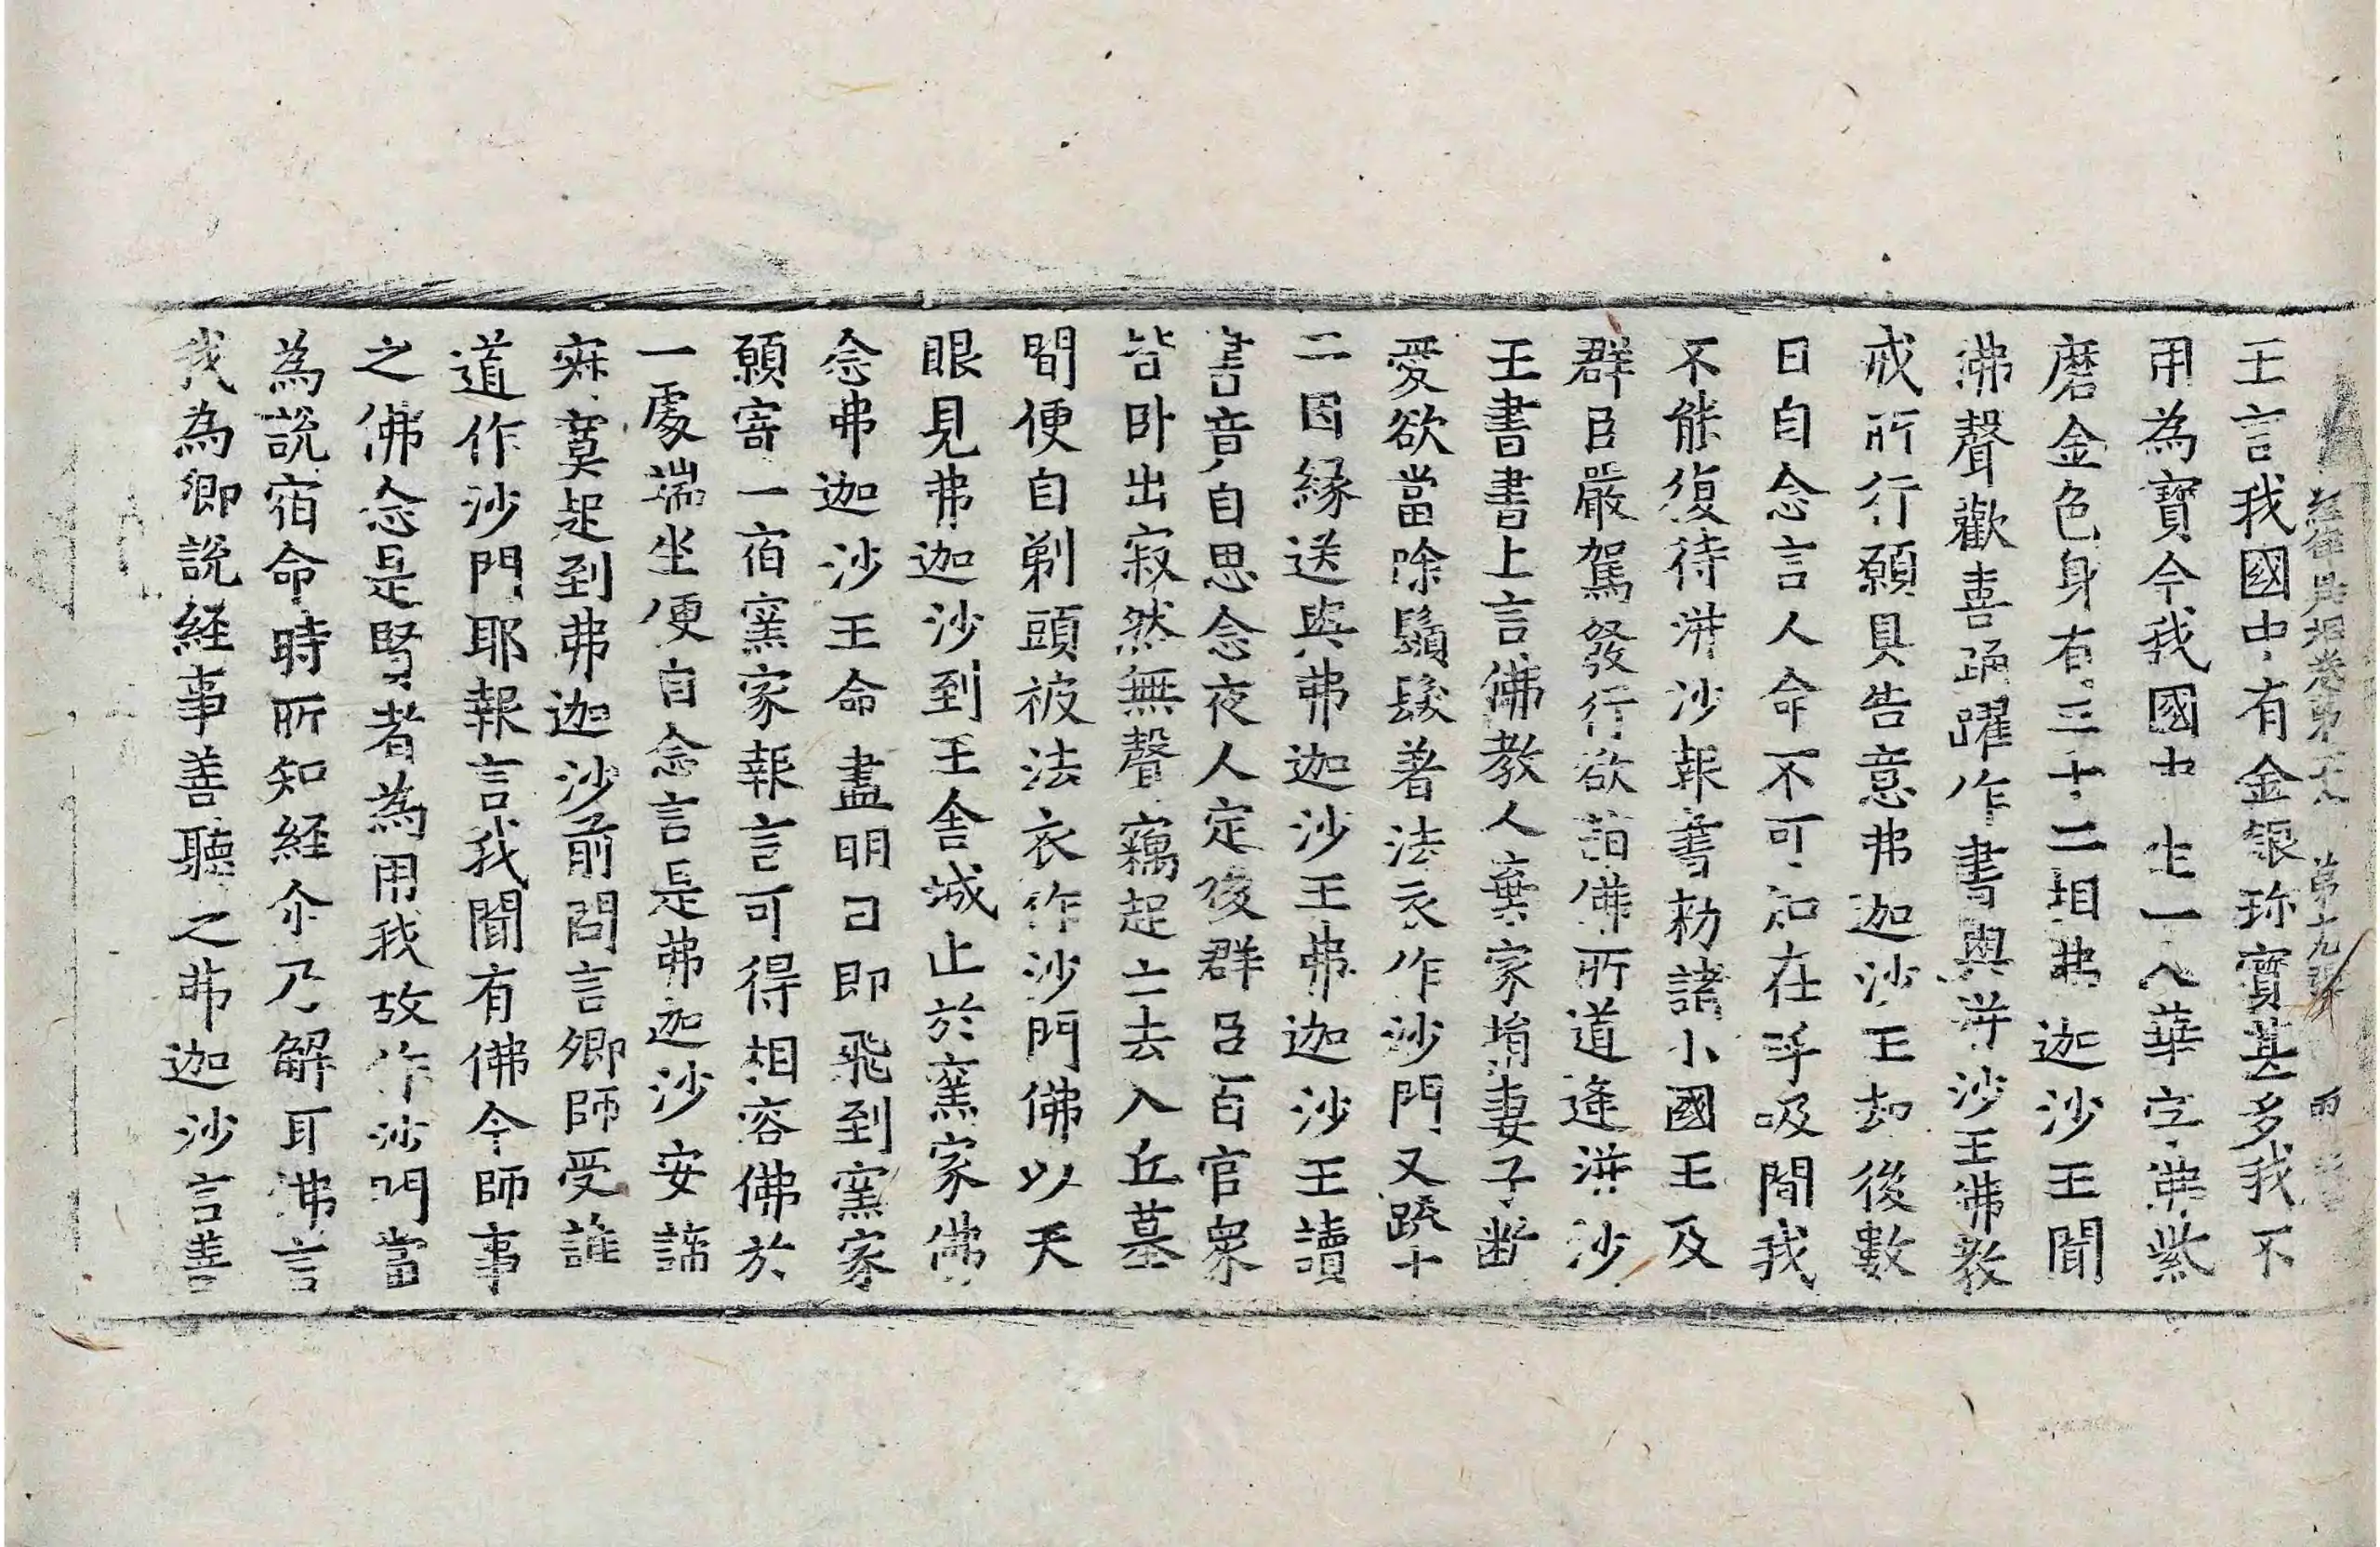 經律異相卷第二十八 第九張 內
王言我國中有金銀珎寶甚多我不
用為寶今我國中生一人華字弗紫
磨金色身有三十二相弗迦沙王聞
沸聲歡喜踊躍作書與洴沙王佛教
戒所行行願具告意弗迦沙王却後數
日自念言人命不可知在呼吸間我
不能復待洴沙報書勑諸小國王及
群臣嚴駕發行欲詣佛所道逢洴沙
王書書上言佛教人棄家捐妻子断
愛欲當除鬚髮著法衣作沙門又䟽十
二因緣送與弗迦沙王弗迦沙王讀
書音自思念夜人定後群臣百官衆
皆卧出寂然無聲竊起亡去入丘墓
間便自剃頭被法衣作沙門佛以天
眼見弗迦沙到王舍城止於窯家佛
念弗迦沙王命盡明日即飛到窯家
願寄一宿窯家報言可得相容佛於
一處端坐便自念言是弗迦沙安諦
寂寞起到弗迦沙前問言卿師受誰
道作沙門耶報言我聞有佛今師事
之佛念是賢者為用我故作沙門當
為說宿命時所知經尒乃解耳沸言
我為卿說経事善聽之弗迦沙言善